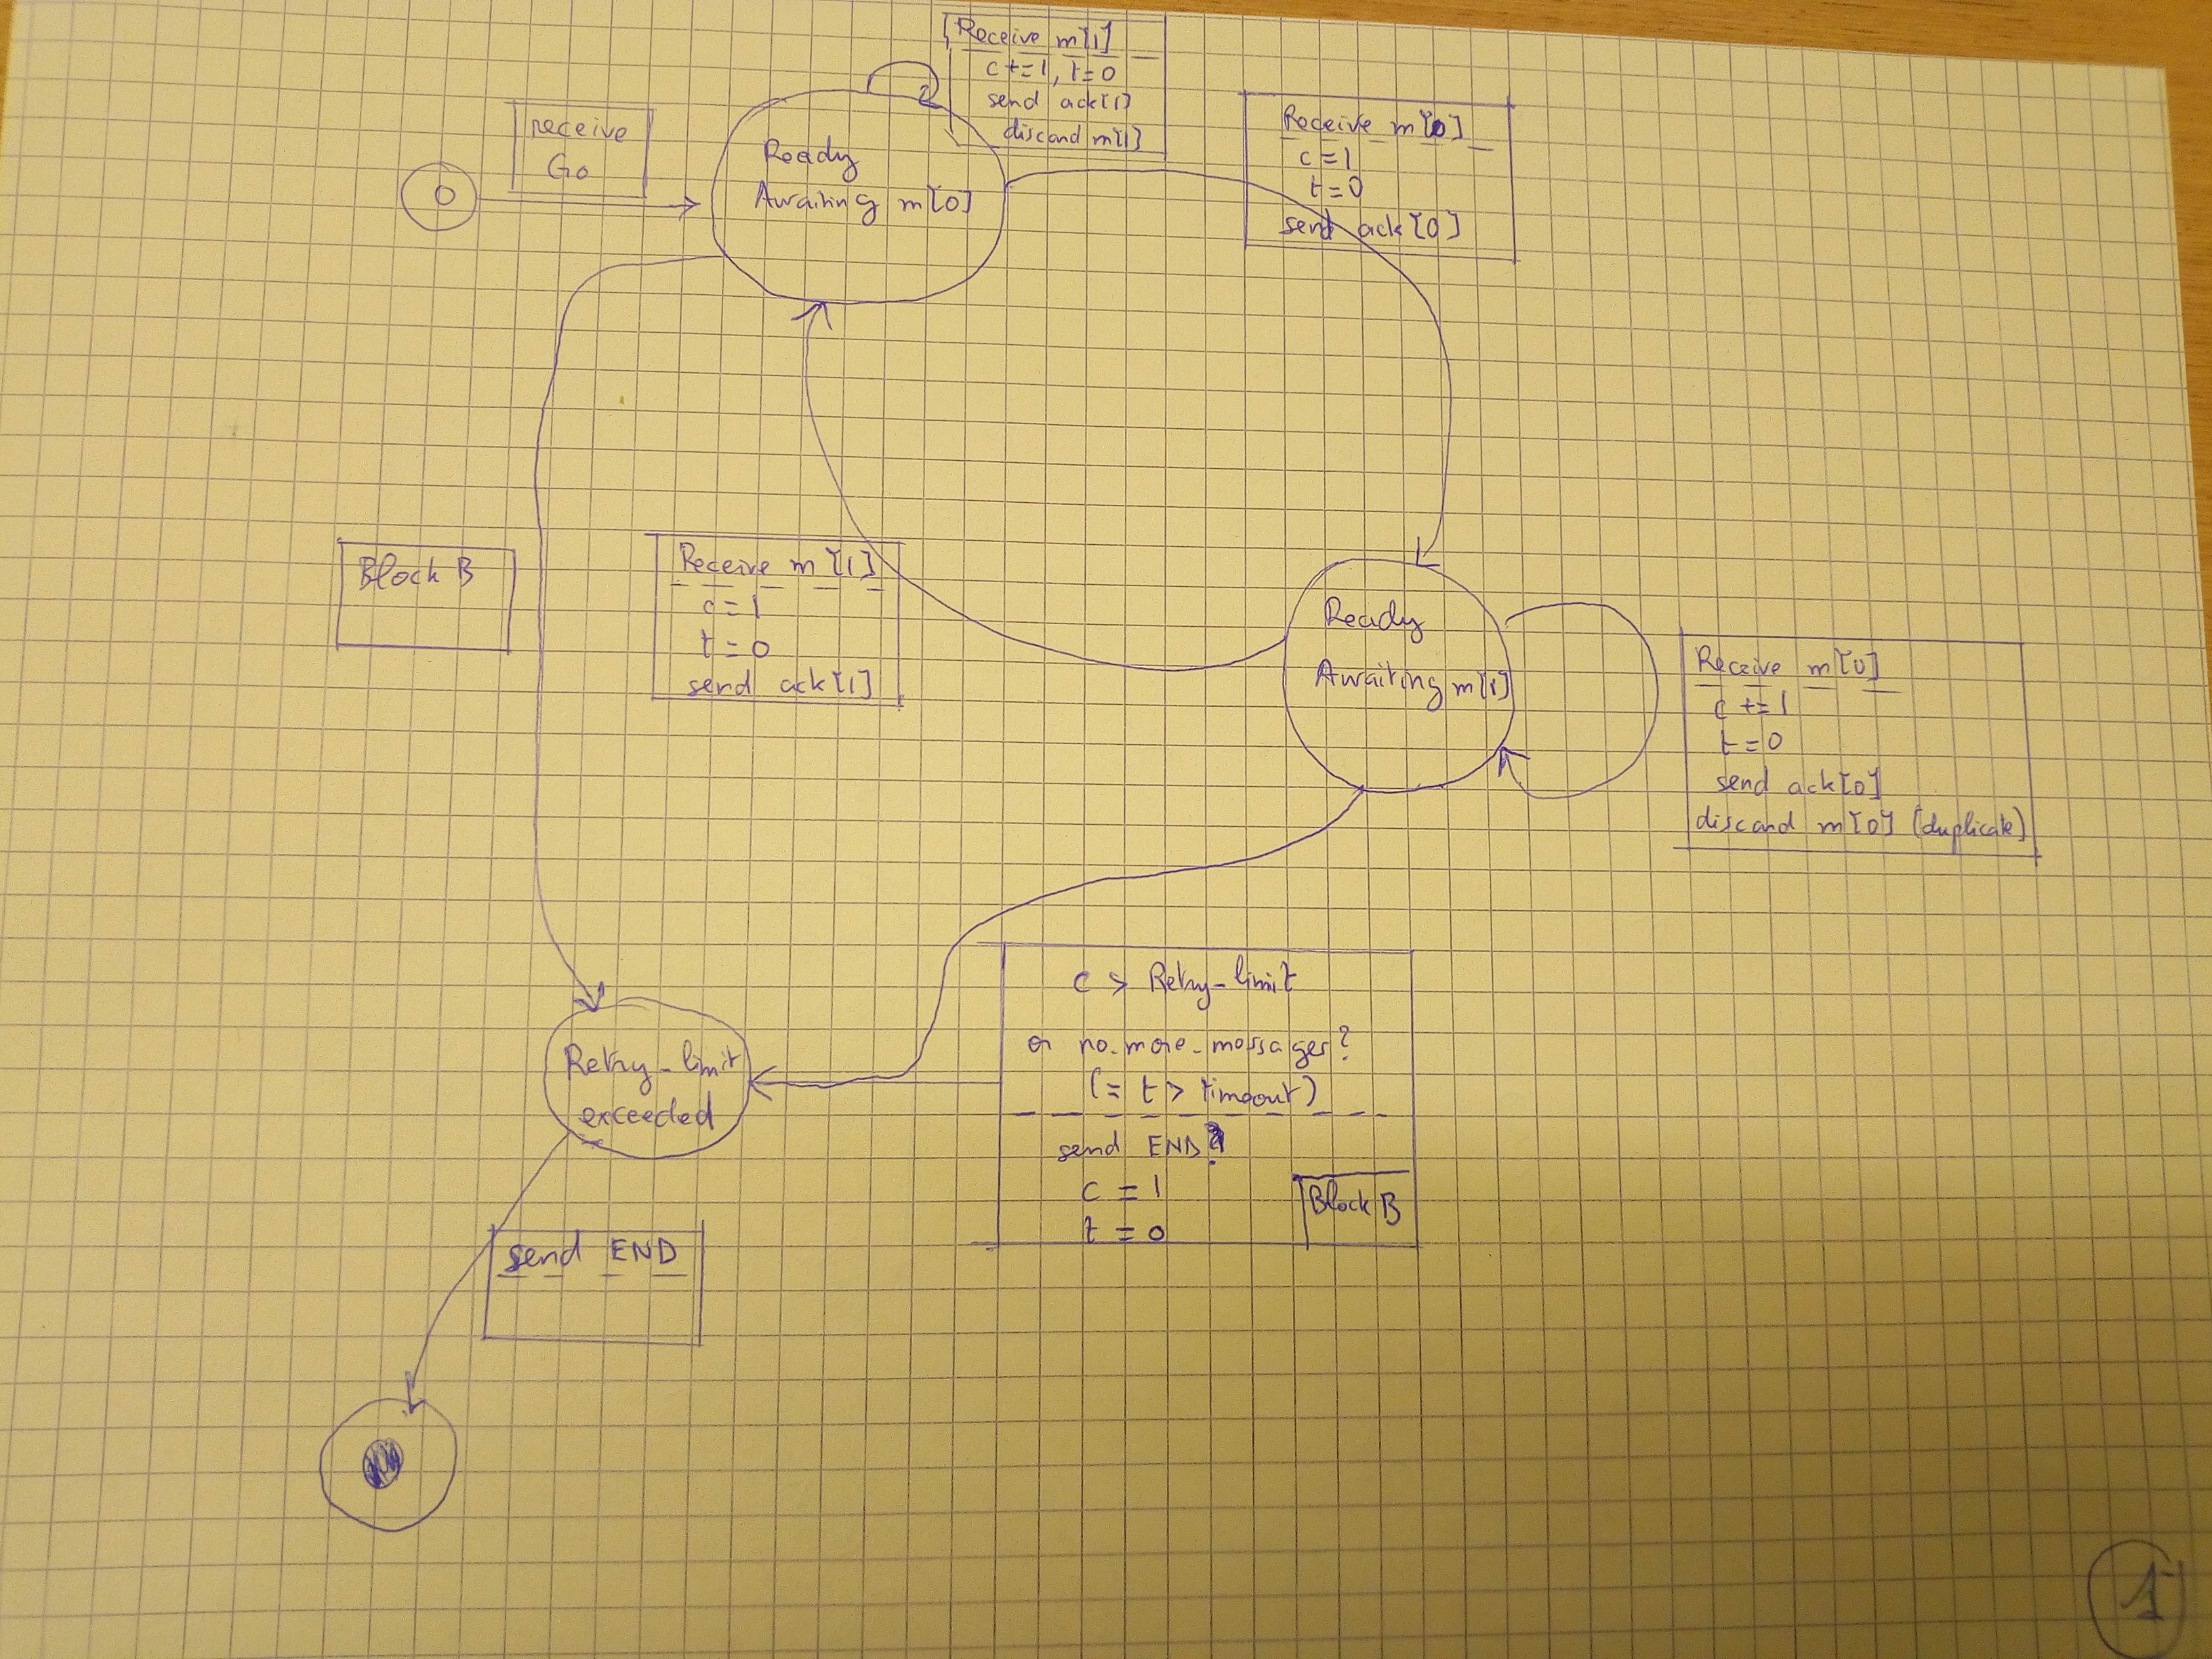 Receive m[1]
c+=1, t=0
send ack[1]
discard m[1]
receive
Go
0
Ready
Awaiting m[0]
Receive m[0]
c=1
t=0
send ack[0]
Block B
Receive m[1]
c=1
t=0
send ack[1]
Ready
Awaiting m[1]
Receive m[0]
c+=1
t=0
send ack[0]
discard m[0] (duplicate)
c > Retry-limit
or no-more-messages?
(= t > timeout)
send END
c = 1
t = 0
Block B
Retry-limit
exceeded
send END
1